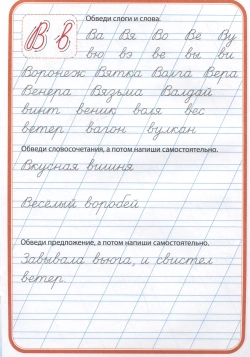 Обведи слоги и слова.
В в
Ва Вя Во Ве Ву
вю вэ ве вы ви
Воронеж Вятка Волга Вера
Венера Вязьма Валдай
винт веник воля вес
ветер вагон вулкан
Обведи словосочетания, а потом напиши самостоятельно.
Вкусная вишня
Веселый воробей
Обведи предложение, а потом напиши самостоятельно.
Завывала вьюга, и свистел
ветер.